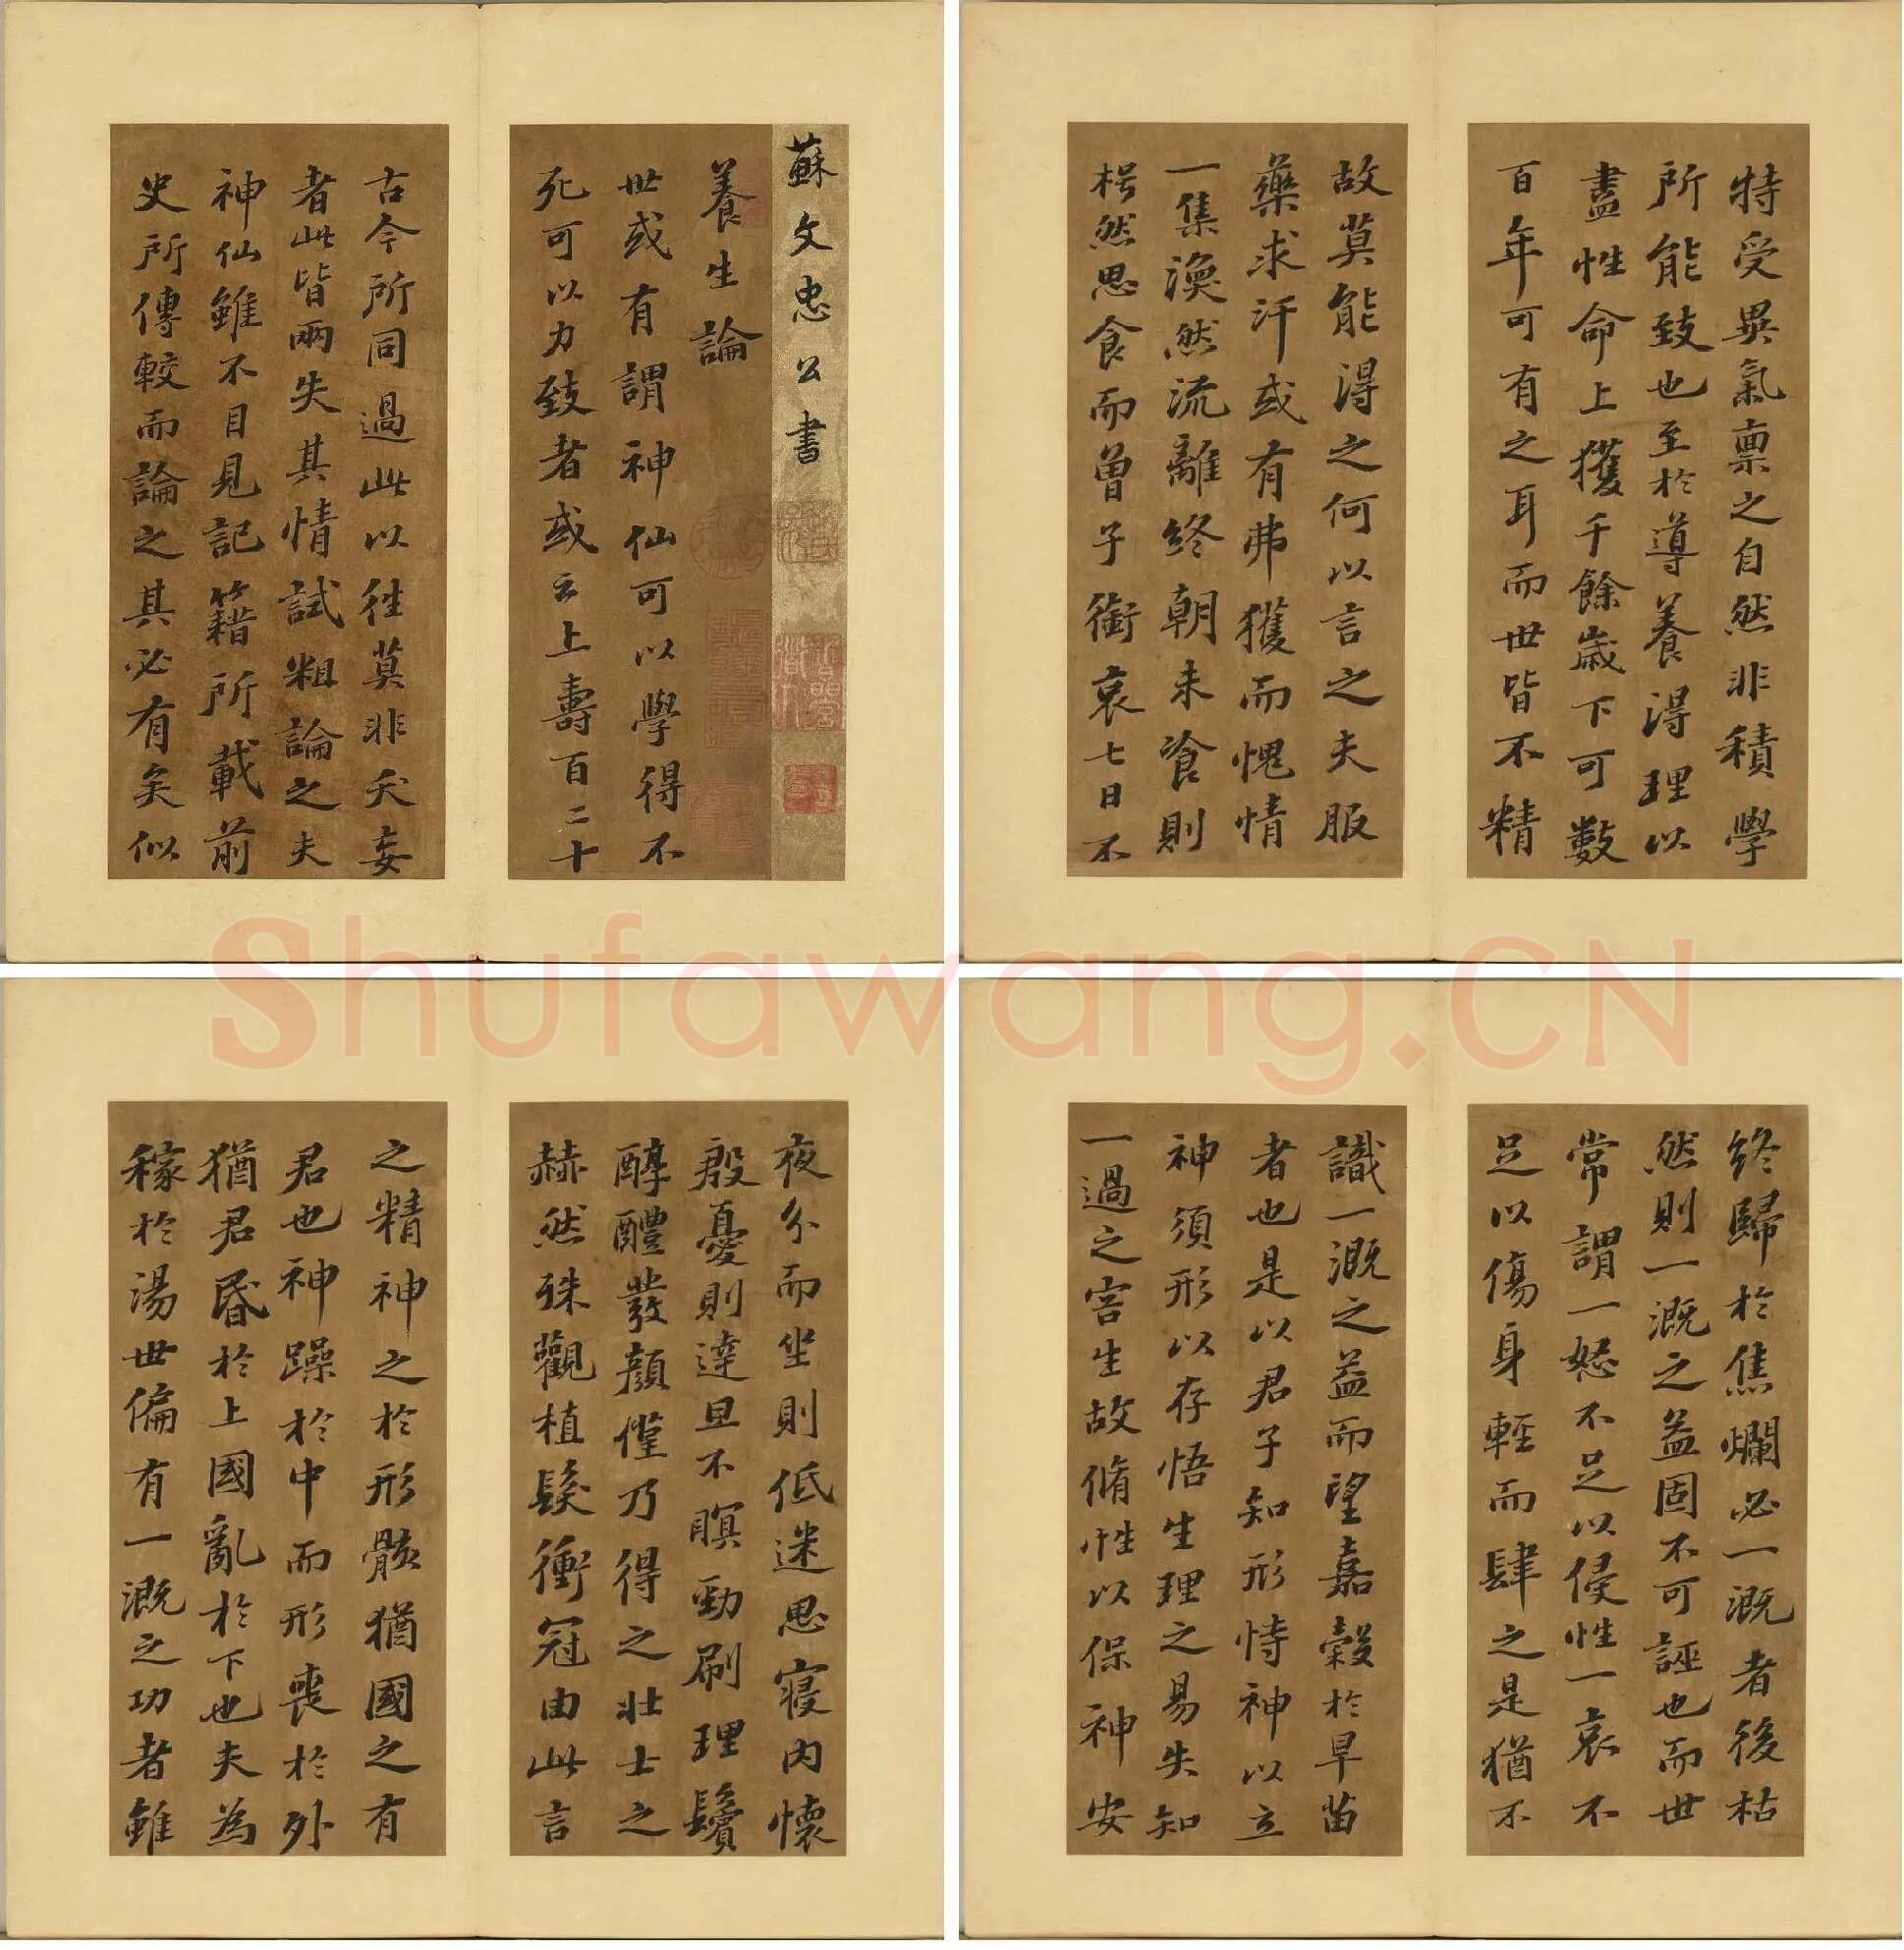 蘇文忠公書
養生論
世或有謂神仙可以學得不
死可以力致者或云上壽百二十
古今所同過此以往莫非夭妄
者此皆兩失其情試粗論之夫
神仙雖不目見記籍所載前
史所傳較而論之其必有矣似
特受異氣稟之自然非積學
所能致也至於導養得理以
盡性命上獲千餘歲下可數
百年可有之耳而世皆不精
故莫能得之何以言之夫服
藥求汗或有弗獲而愧情
一集渙然流離終朝未飡則
枵然思食而曾子銜哀七日不
夜分而坐則低迷思寢內懷
殷憂則達旦不瞑勁刷理鬢
醇醴發顏僅乃得之壯士之
赫然殊觀植髮衝冠由此言
之精神之於形骸猶國之有
君也神躁於中而形喪於外
猶君昏於上國亂於下也夫為
稼於湯世偏有一溉之功者雖
終歸於焦爛必一溉者後枯
然則一溉之益固不可誣也而世
常謂一怒不足以侵性一哀不
足以傷身輕而肆之是猶不
識一溉之益而望嘉穀於旱苗
者也是以君子知形恃神以立
神須形以存悟生理之易失知
一過之害生故脩性以保神安
Shufawang.CN